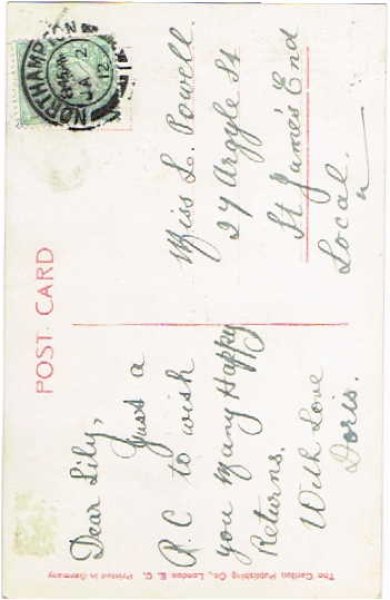 POST CARD
Dear Lily,
Just a
P.C to wish
you Many Happy
Returns.
With Love
Doris.
Miss L. Powell.
27 Argyle St
St James End
Local.
NORTHAMPTON
JA 2
12
The Carlton Publishing Co., London E. C. Printed in Germany